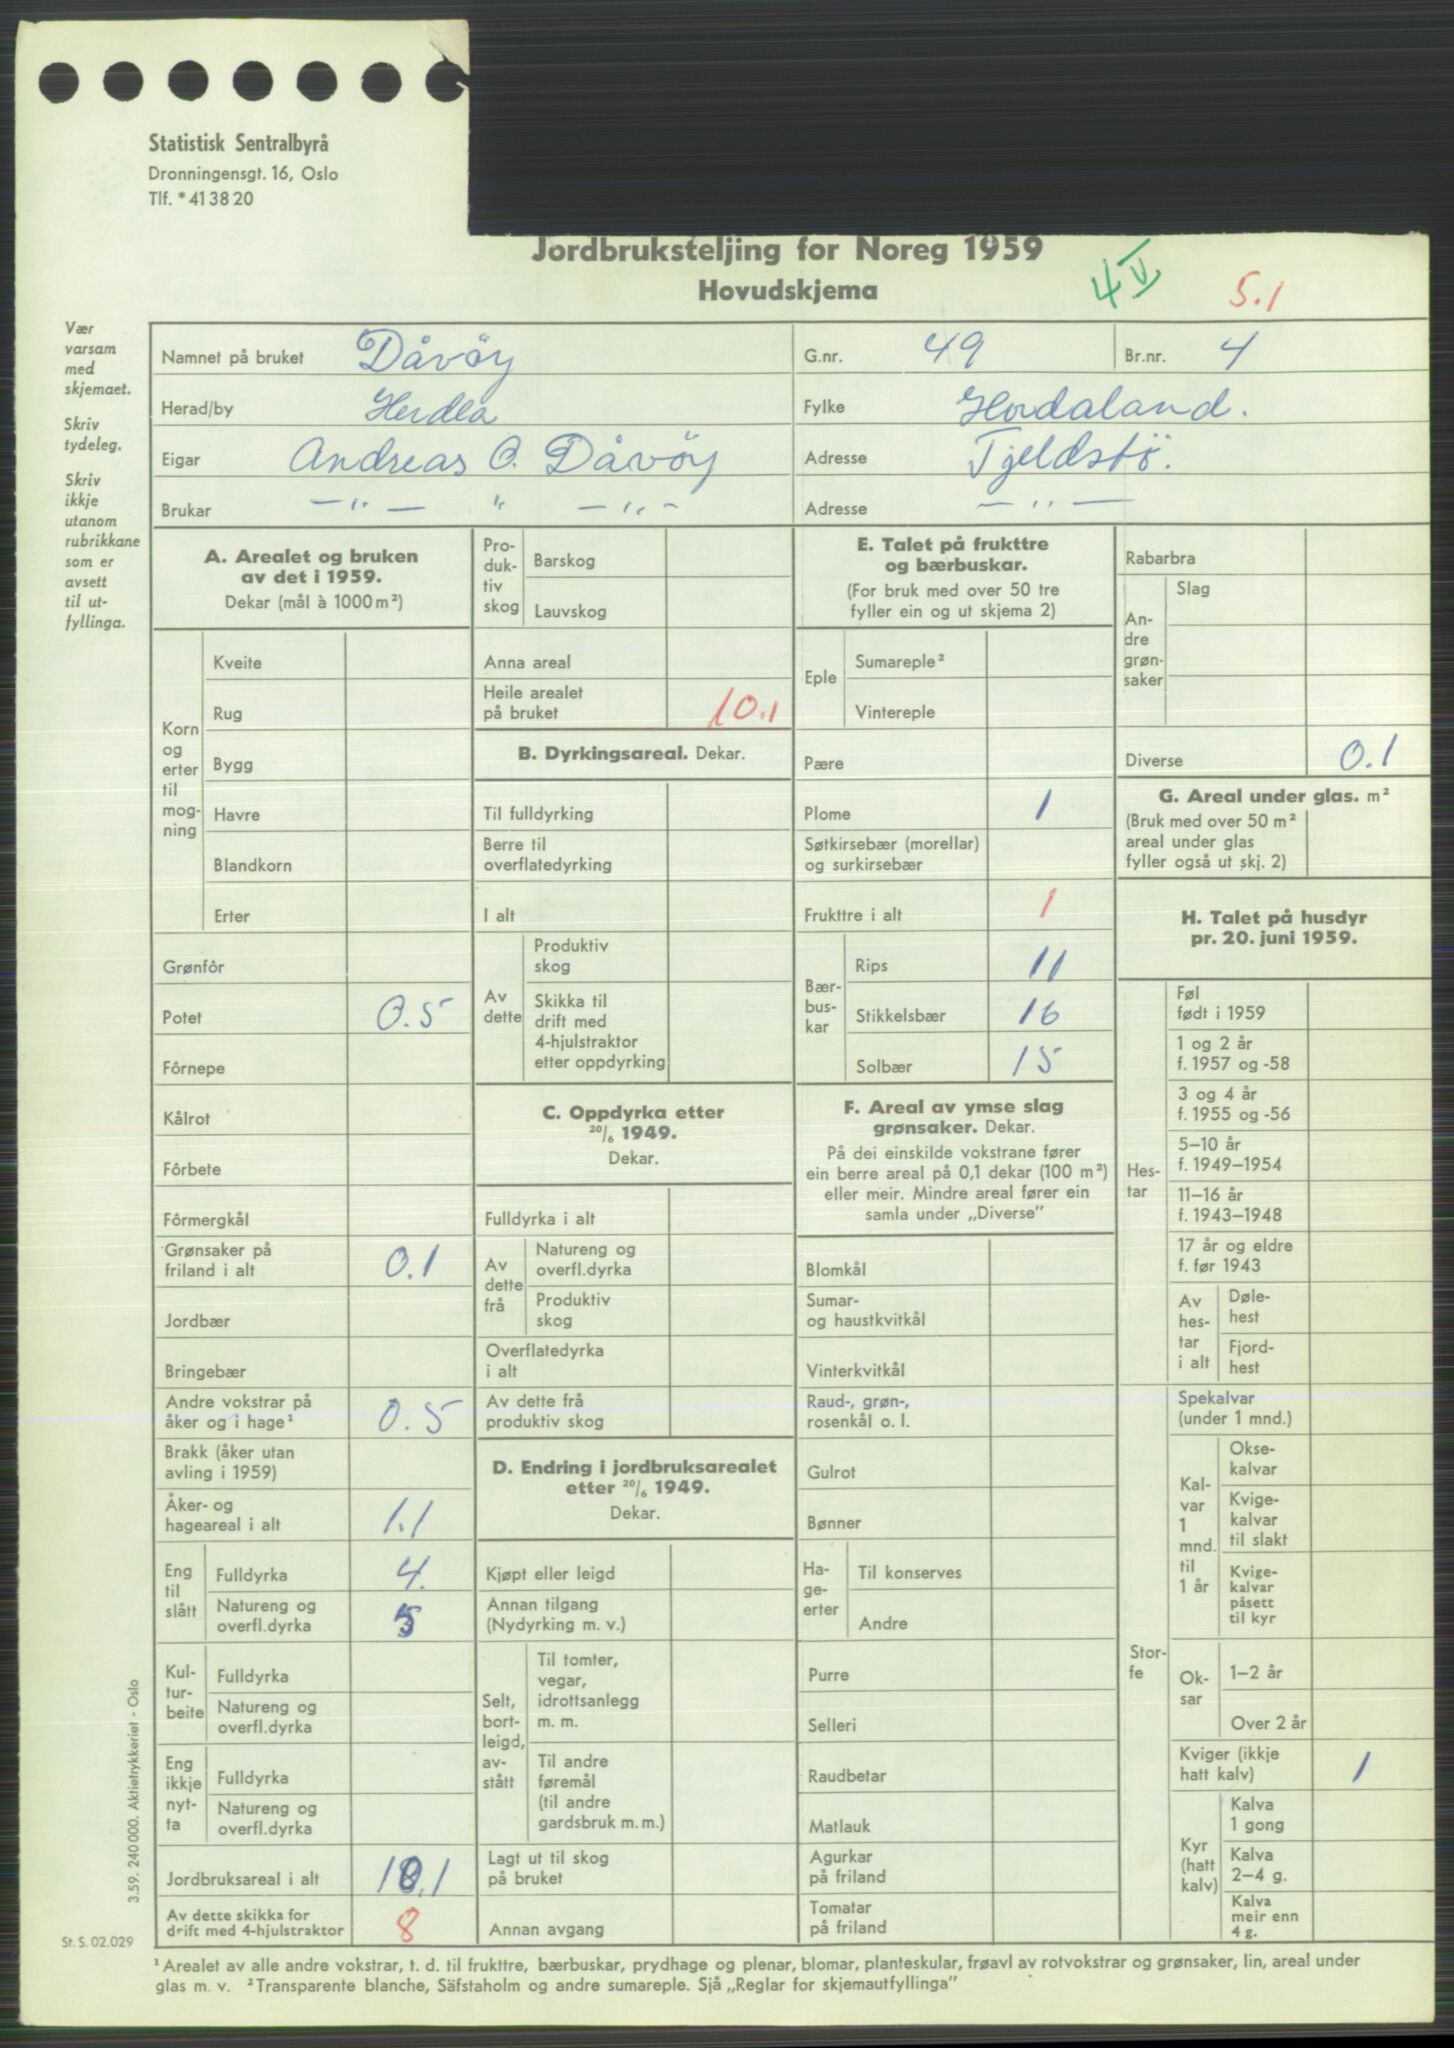 Statistisk Sentralbyrå
Dronningensgt. 16, Oslo
Tlf. * 41 38 20
Jordbruksteljing for Noreg 1959
Hovudskjema
4 V
5.1
Vær
varsam
med
skjemaet.
Skriv
tydeleg.
Skriv
ikkje
utanom
rubrikkane
som er
avsett
til ut-
fyllinga.
Namnet på bruket Dåvöy G.nr. 49 Br.nr. 4
Herad/by Herdla Fylke Hordaland.
Eigar Andreas O. Dåvöy Adresse Tjeldstö.
Brukar —"— " —"— Adresse —"—
A. Arealet og bruken
av det i 1959.
Dekar (mål à 1000 m²)
Korn
og
erter
til
mog-
ning
Kveite
Rug
Bygg
Havre
Blandkorn
Erter
Grønfôr
Potet 0.5
Fôrnepe
Kålrot
Fôrbete
Fôrmergkål
Grønsaker på
friland i alt 0.1
Jordbær
Bringebær
Andre vokstrar på
åker og i hage¹ 0.5
Brakk (åker utan
avling i 1959)
Åker- og
hageareal i alt 1.1
Eng
til
slått
Fulldyrka 4.
Natureng og
overfl.dyrka 5
Kul-
tur-
beite
Fulldyrka
Natureng og
overfl.dyrka
Eng
ikkje
nyt-
ta
Fulldyrka
Natureng og
overfl.dyrka
Jordbruksareal i alt 10.1
Av dette skikka for
drift med 4-hjulstraktor 8
Pro-
duk-
tiv
skog
Barskog
Lauvskog
Anna areal
Heile arealet
på bruket 10.1
B. Dyrkingsareal. Dekar.
Til fulldyrking
Berre til
overflatedyrking
I alt
Av
dette
Produktiv
skog
Skikka til
drift med
4-hjulstraktor
etter oppdyrking
C. Oppdyrka etter
20/6 1949.
Dekar.
Fulldyrka i alt
Av
dette
frå
Natureng og
overfl.dyrka
Produktiv
skog
Overflatedyrka
i alt
Av dette frå
produktiv skog
D. Endring i jordbruksarealet
etter 20/6 1949.
Dekar.
Kjøpt eller leigd
Annan tilgang
(Nydyrking m. v.)
Selt,
bort-
leigd,
av-
stått
Til tomter,
vegar,
idrottsanlegg
m. m.
Til andre
føremål
(til andre
gardsbruk m. m.)
Lagt ut til skog
på bruket
Annan avgang
E. Talet på frukttre
og bærbuskar.
(For bruk med over 50 tre
fyller ein og ut skjema 2)
Eple
Sumareple²
Vintereple
Pære
Plome 1
Søtkirsebær (morellar)
og surkirsebær
Frukttre i alt 1
Bær-
bus-
kar
Rips 11
Stikkelsbær 16
Solbær 15
F. Areal av ymse slag
grønsaker. Dekar.
På dei einskilde vokstrane fører
ein berre areal på 0,1 dekar (100 m²)
eller meir. Mindre areal fører ein
samla under „Diverse”
Blomkål
Sumar-
og haustkvitkål
Vinterkvitkål
Raud-, grøn-,
rosenkål o. l.
Gulrot
Bønner
Ha-
ge-
erter
Til konserves
Andre
Purre
Selleri
Raudbetar
Matlauk
Agurkar
på friland
Tomatar
på friland
Rabarbra
An-
dre
grøn-
saker
Slag
Diverse 0.1
G. Areal under glas. m²
(Bruk med over 50 m²
areal under glas
fyller også ut skj. 2)
H. Talet på husdyr
pr. 20. juni 1959.
Hes-
tar
Føl
født i 1959
1 og 2 år
f. 1957 og -58
3 og 4 år
f. 1955 og -56
5–10 år
f. 1949–1954
11–16 år
f. 1943–1948
17 år og eldre
f. før 1943
Av
hes-
tar
i alt
Døle-
hest
Fjord-
hest
Stor-
fe
Spekalvar
(under 1 mnd.)
Kal-
var
1
mnd.
til
1 år
Okse-
kalvar
Kvige-
kalvar
til slakt
Kvige-
kalvar
påsett
til kyr
Ok-
sar
1–2 år
Over 2 år
Kviger (ikkje
hatt kalv) 1
Kyr
(hatt
kalv)
Kalva
1 gong
Kalva
2–4 g.
Kalva
meir enn
4 g.
3.59. 240 000. Aktietrykkeriet - Oslo
St. S. 02.029
¹ Arealet av alle andre vokstrar, t. d. til frukttre, bærbuskar, prydhage og plenar, blomar, planteskular, frøavl av rotvokstrar og grønsaker, lin, areal under
glas m. v. ² Transparente blanche, Säfstaholm og andre sumareple. Sjå „Reglar for skjemautfyllinga”